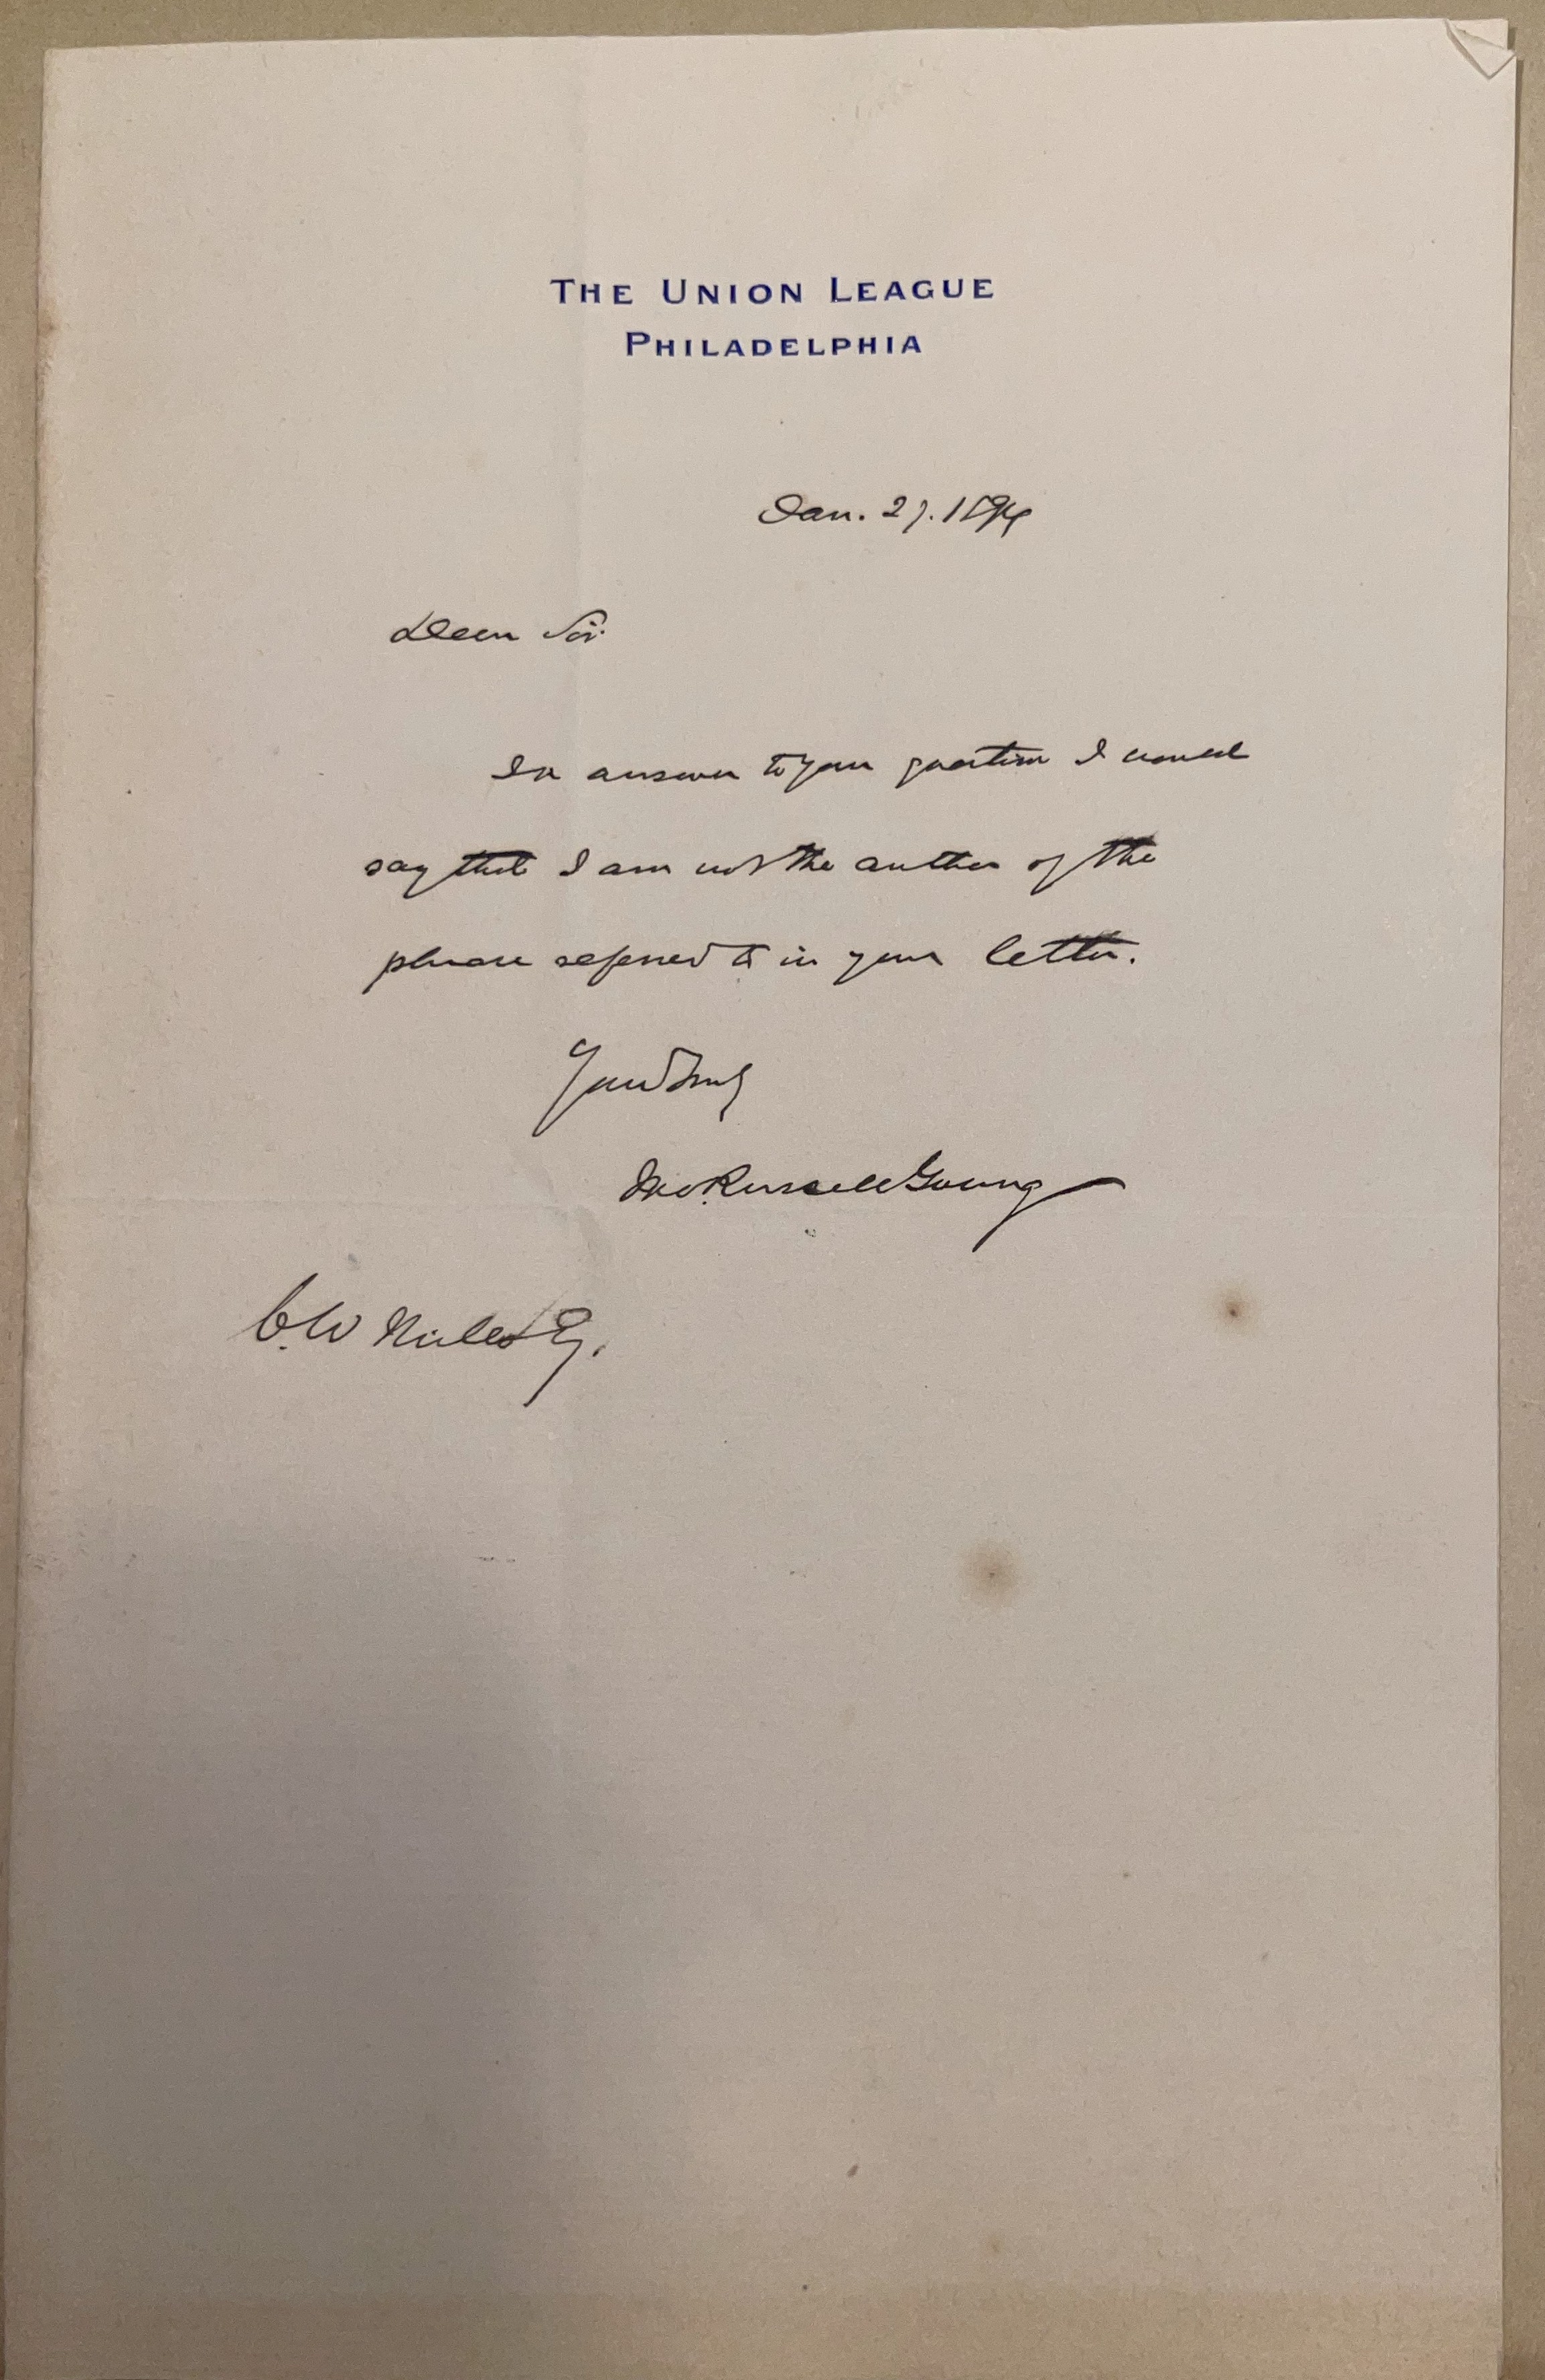 THE UNION LEAGUE
PHILADELPHIA
Jan. 27. 1894
Dear Sir:
In answer to your question I would
say that I am not the author of the
phrase referred to in your letter.
Yours truly
Jno. Russell Young
C. W.